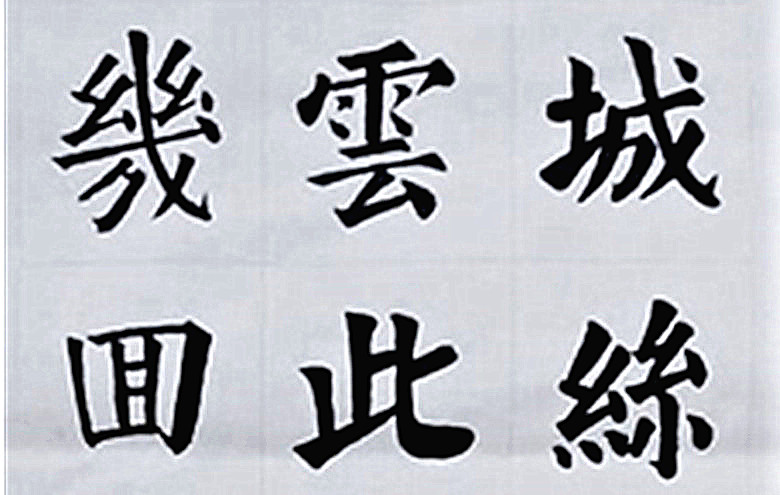 城絲
雲此
幾囬